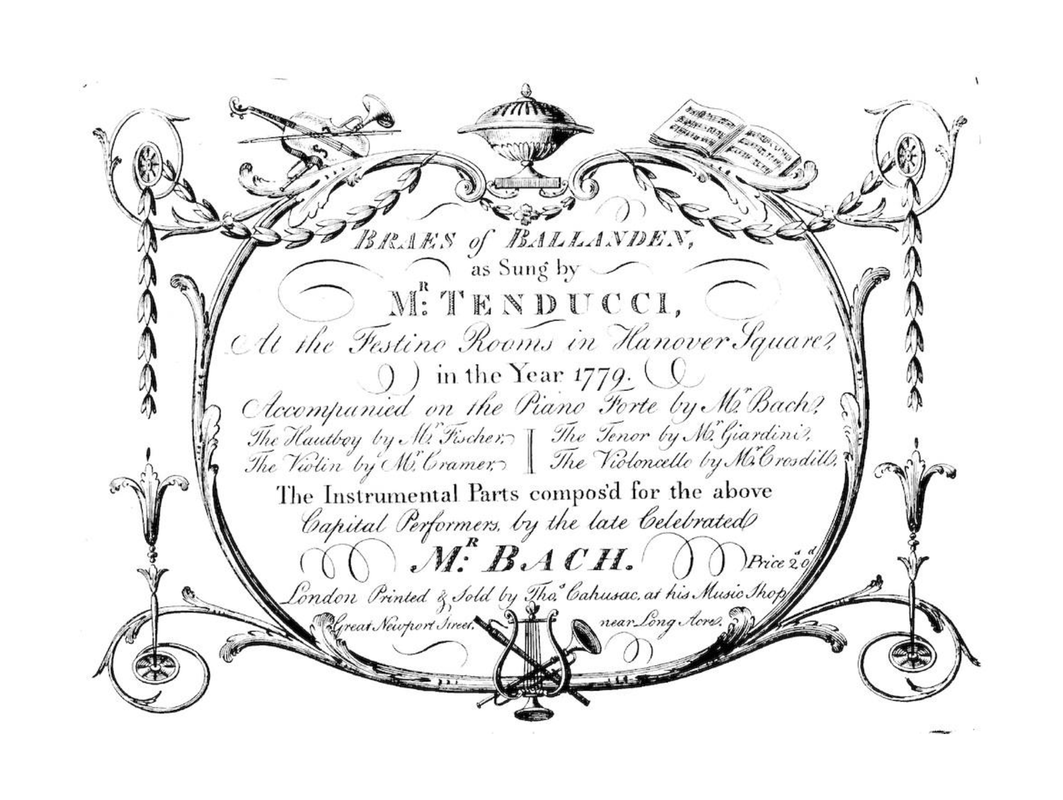 BRAES of BALLANDEN,
as Sung by
MR: TENDUCCI,
At the Festino Rooms in Hanover Square,
in the Year 1779.
Accompanied on the Piano Forte by Mr. Bach,
The Hautboy by Mr. Fischer, The Tenor by Mr. Giardini,
The Violin by Mr. Cramer, The Violoncello by Mr. Crosdill,
The Instrumental Parts compos'd for the above
Capital Performers, by the late Celebrated
MR: BACH.
Price 2s 0d
London Printed & Sold by Thos. Cahusac, at his Music Shop
Great Newport Street, near Long Acre.